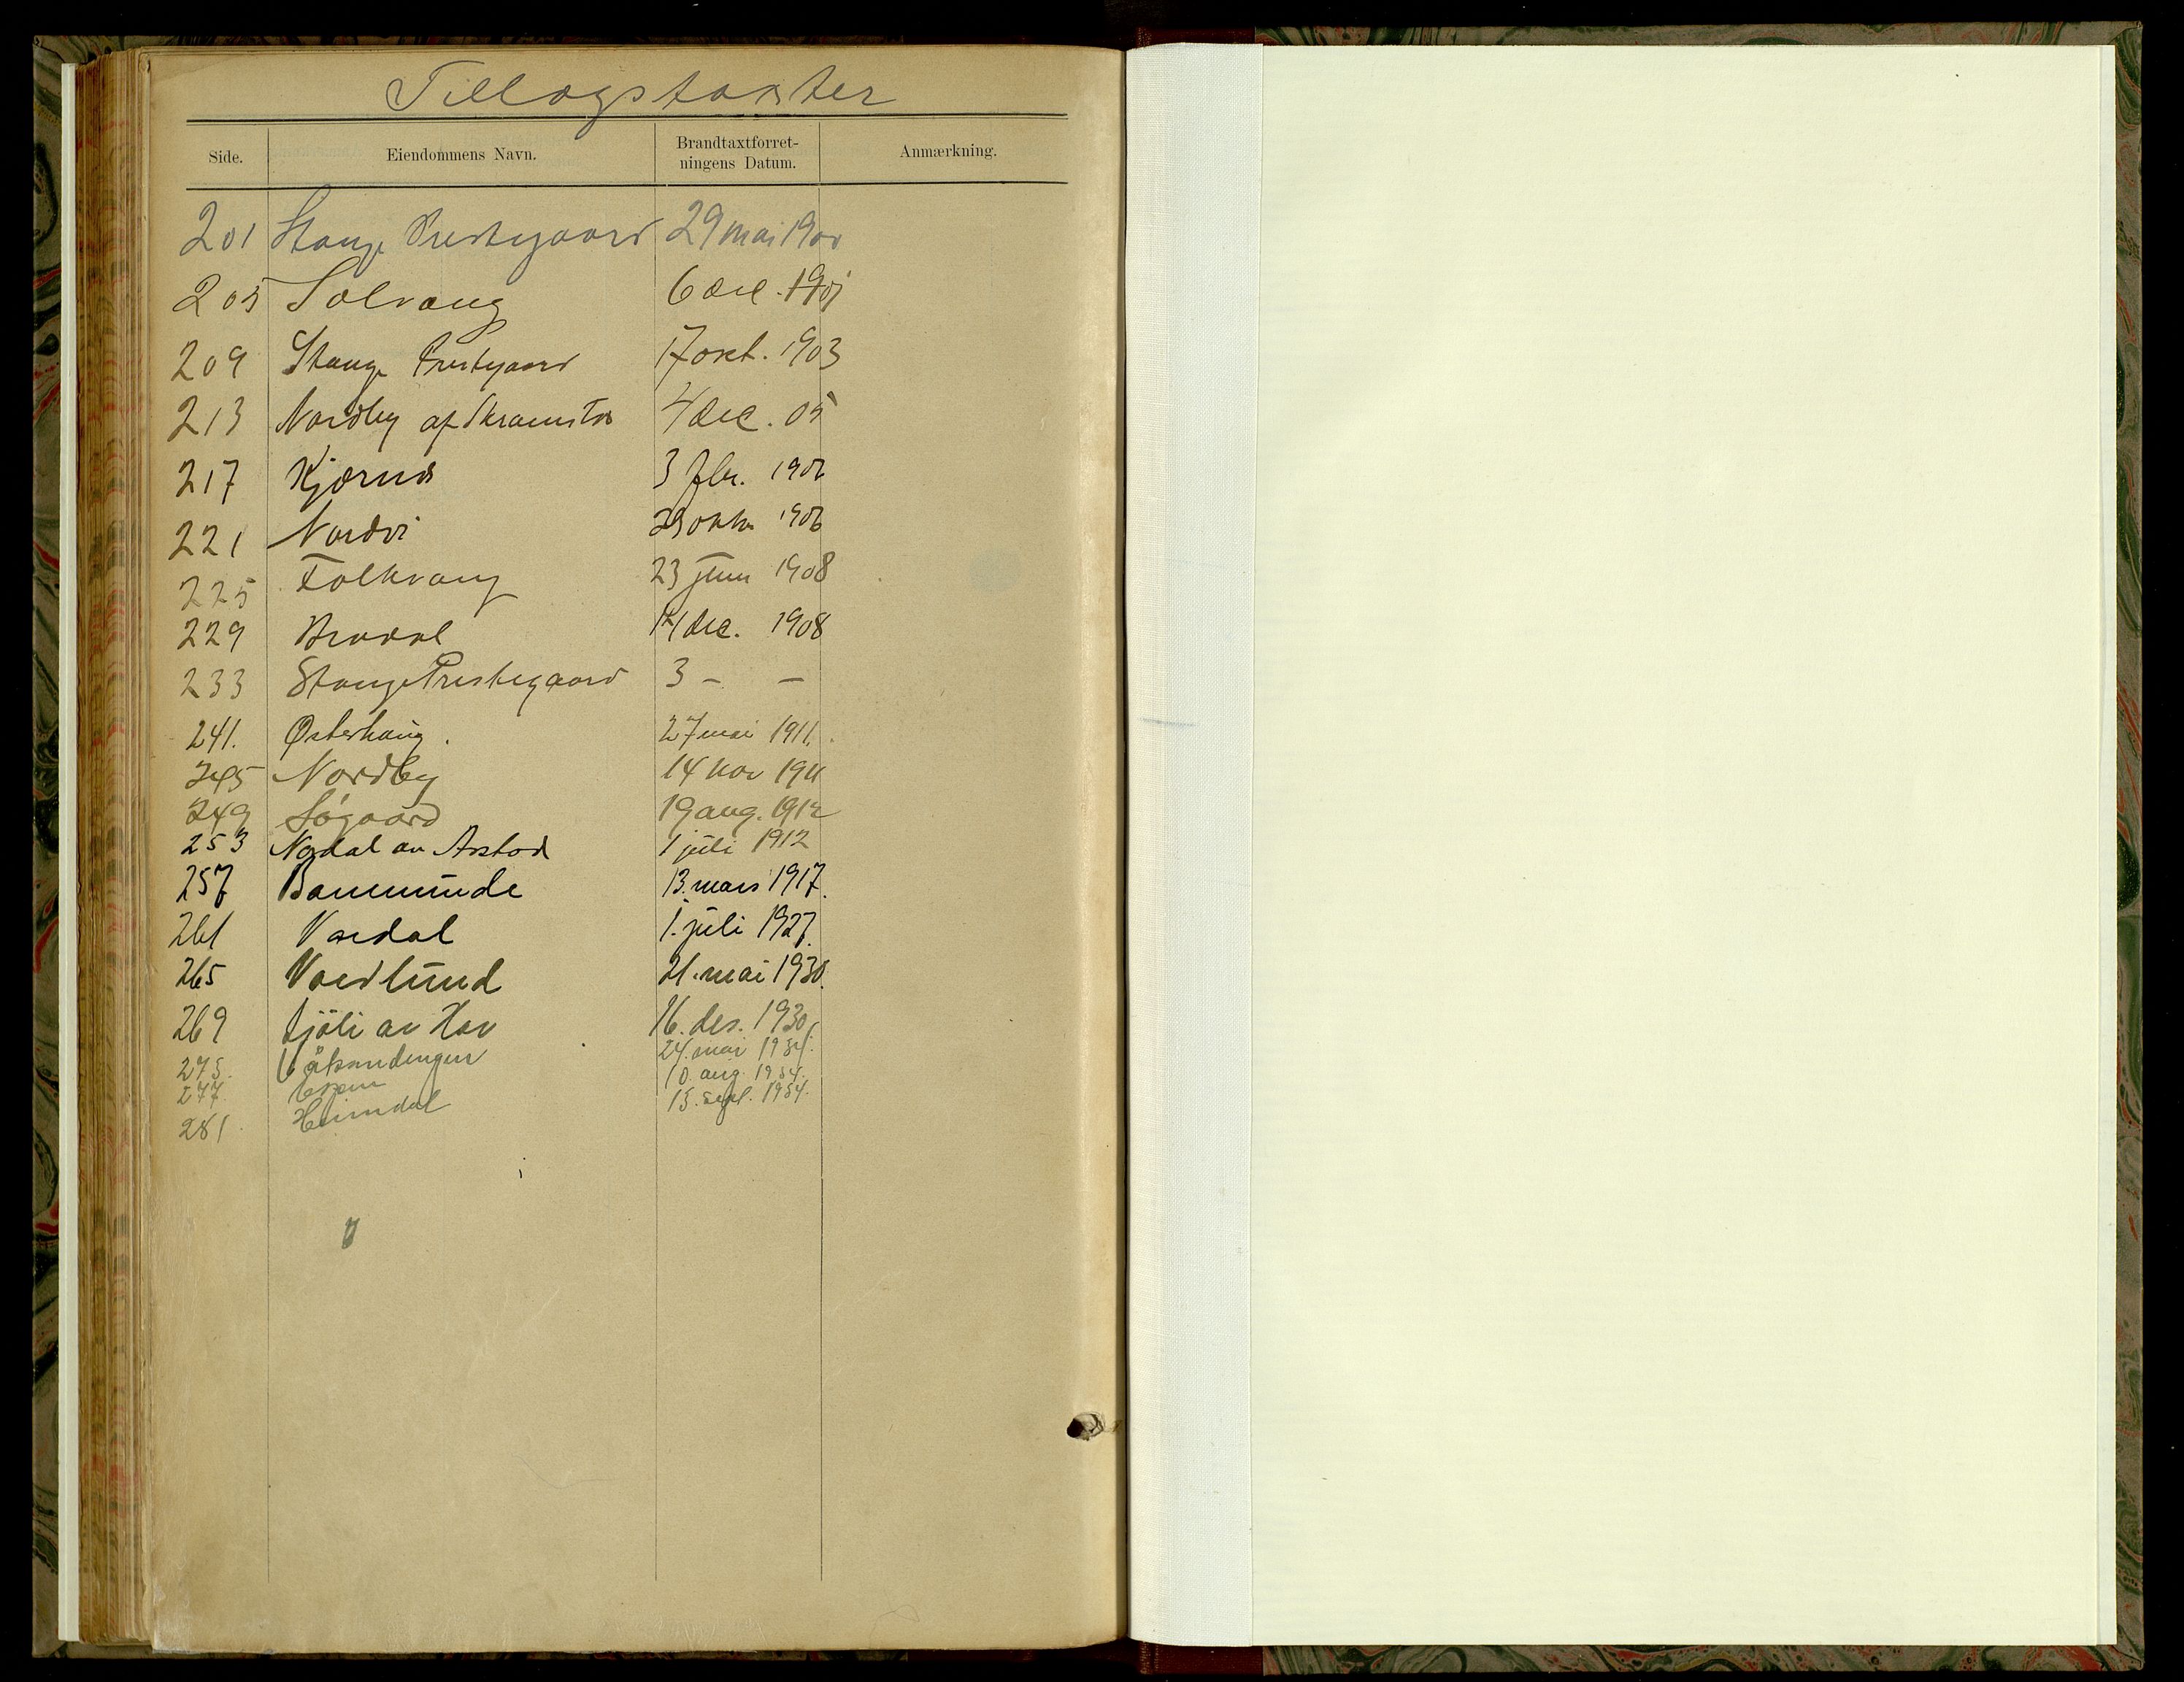 Tillægstaxter
Side. Eiendommens Navn. Brandtaxtforret-ningens Datum. Anmærkning.
201 Stange Prestegaard 29 mai 1900
205 Solvang 6 dec. 1901
209 Stange Prestegaard 17 okt. 1903
213 Nordby af Skramstad 4 dec. 05
217 Kjærnds 3 fbr. 1906
221 Nordvi 1906
225 Folkvang 23 juni 1908
229 Brodal 14 dec. 1908
233 Stange Prestegaard 3 – –
241. Østerhaug. 27 mai 1911.
245 Nordby 14 nov 1911
249 Søgaard 19 aug. 1912
253 Nordal av Arstad 1 juli 1912
257 13. mars 1917.
261 Vardal 1. juli 1927.
265 Nordlund 21. mai 1930.
269 av 16. des. 1930.
275. 24. mai 1934.
277. 10. aug. 1934.
281. Heimdal 15. sept. 1934.